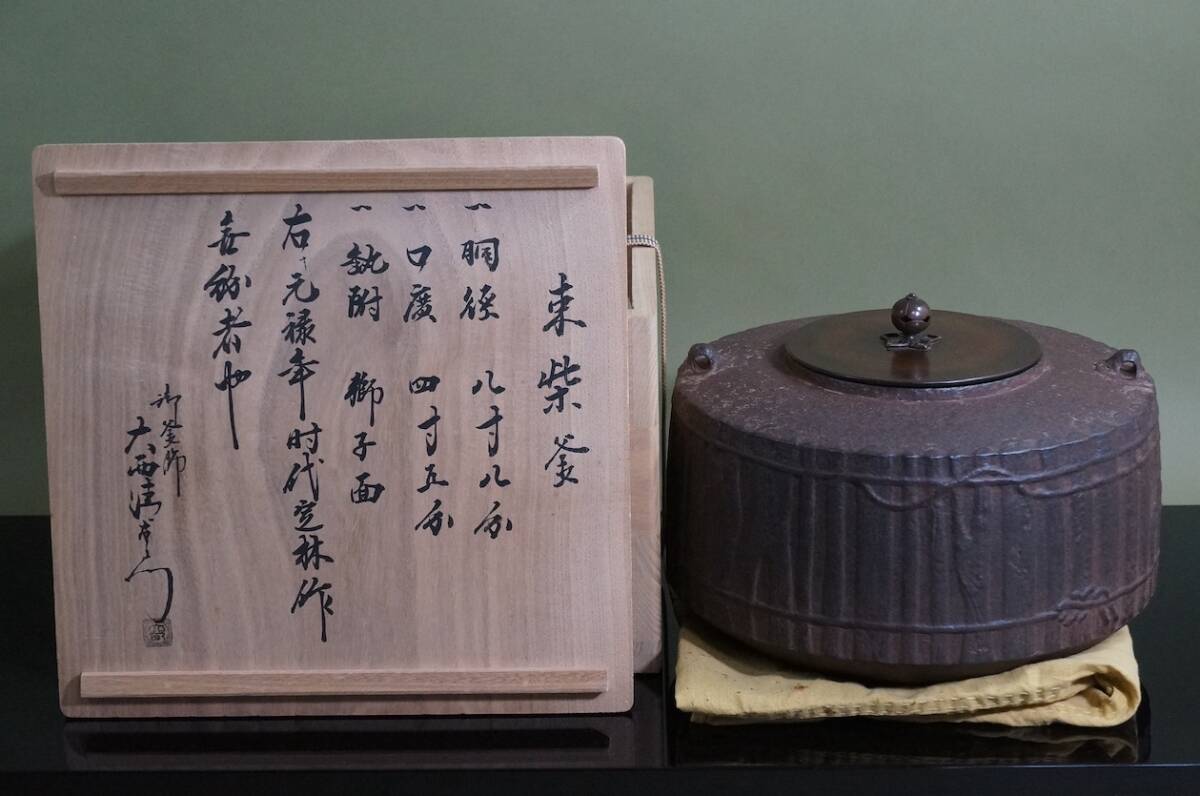 束柴釜
一 胴径 八寸八分
一 口廣 四寸五分
一 執附 獅子面
右ハ元禄年時代定林作
無紛者也
御釜師
大西清右衛門